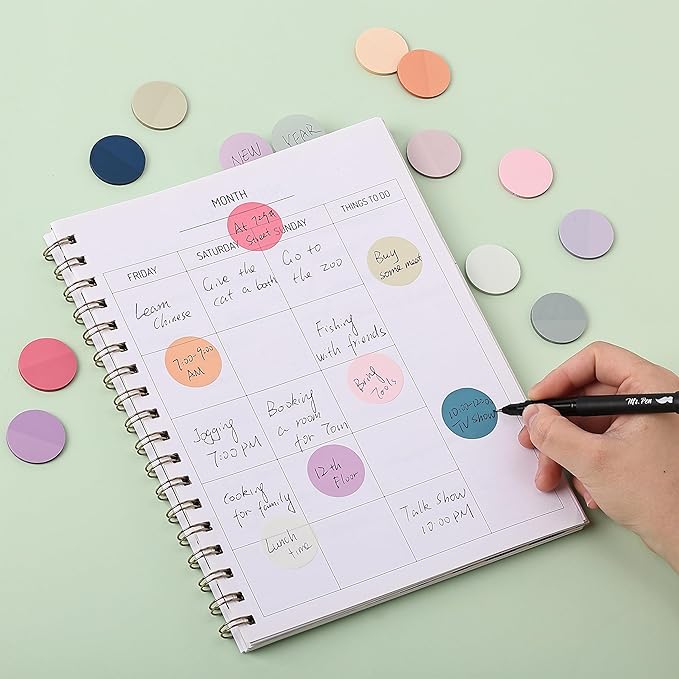 NEW
YEAR
MONTH
At 72th
Street
FRIDAY
SATURDAY
SUNDAY
THINGS TO DO
Learn
Chinese
Give the
cat a bath
Go to
the zoo
Buy
some meat
7:00-9:00
AM
Fishing
with friends
Bring
Tools
Jogging
7:00 PM
Booking
a room
for Tom
10:00-12:00
TV show
Mr. Pen
Cooking
for family
12th
Floor
Talk Show
10:00 PM
Lunch
time